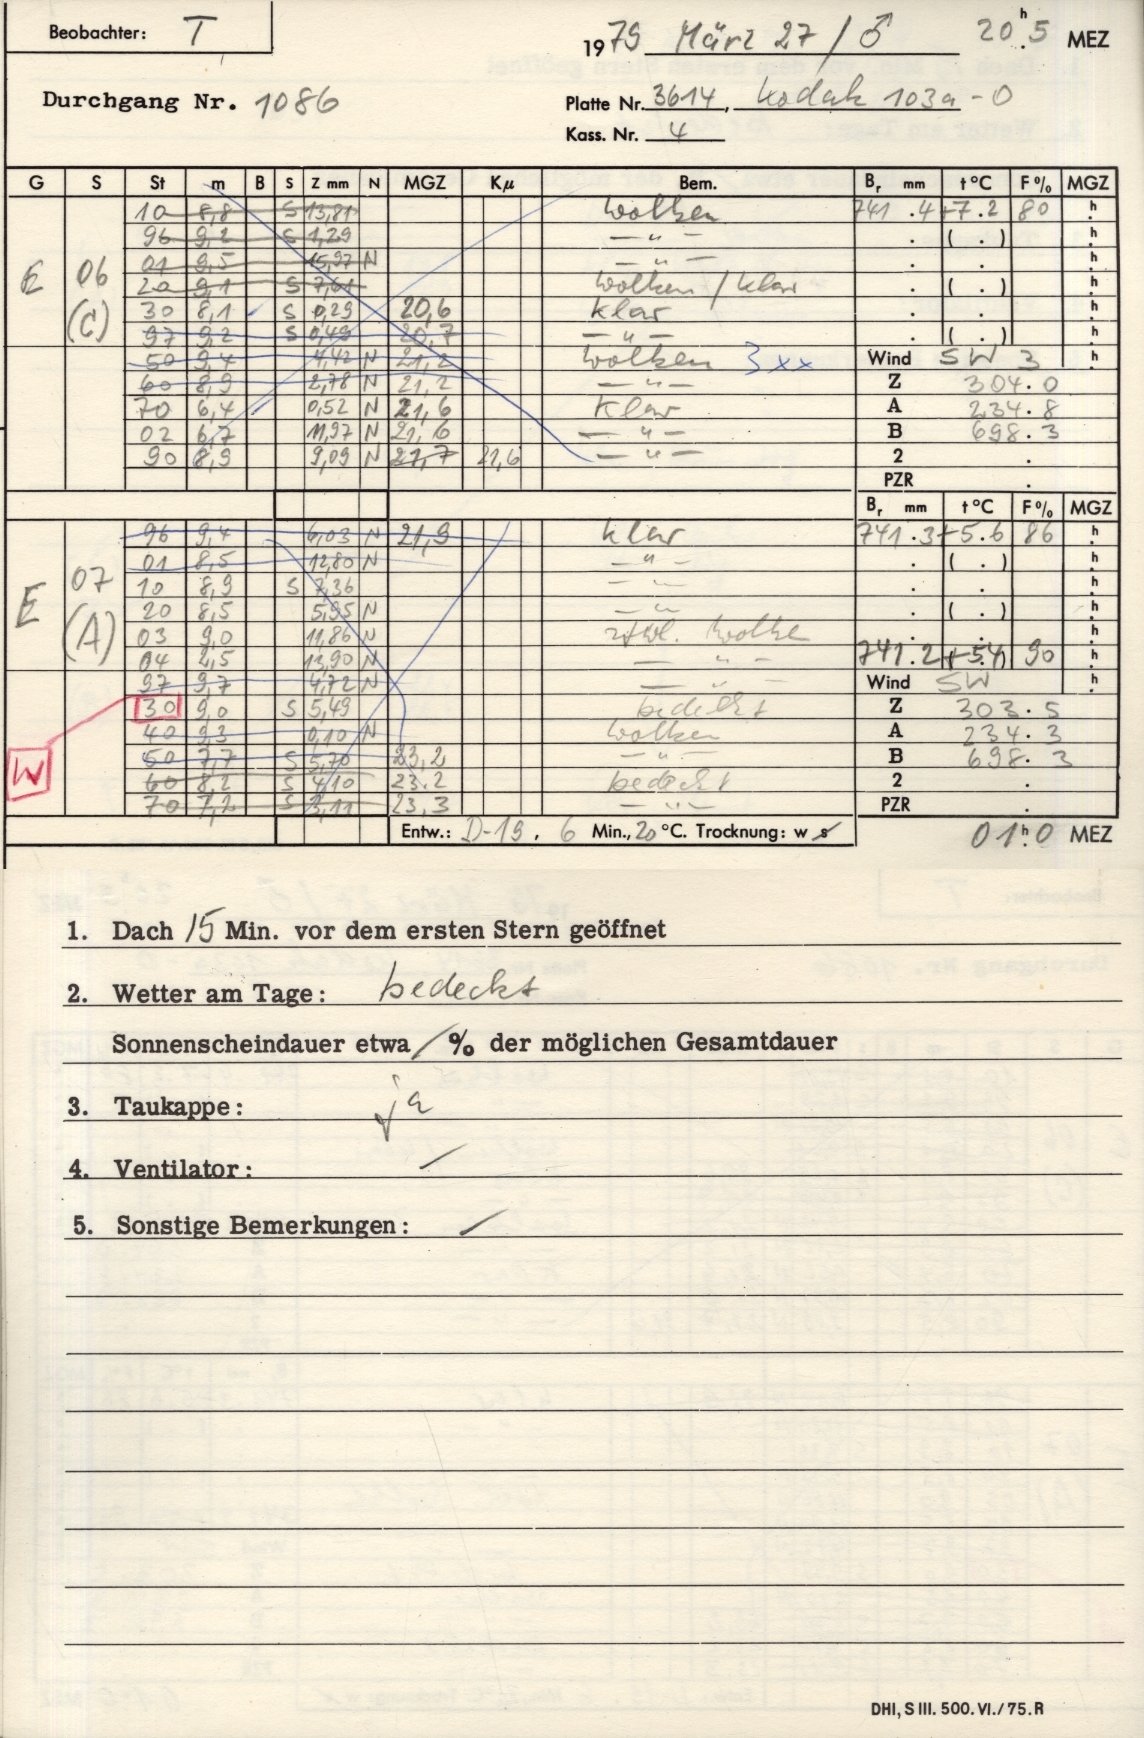 Beobachter: T
1979 März 27 / ♂ 20h.5 MEZ
Durchgang Nr. 1086
Platte Nr. 3614, Kodak 103a-O
Kass. Nr. 4
G S St m B S Z mm N MGZ Kμ Bem. Br mm t°C F% MGZ
10 8,8 S 13,81 Wolken 741.4 +7.2 80 h
96 9,2 S 1,29 — " — . ( . ) h
01 9,5 15,97 N — " — . . h
E 06 20 9,1 S 7,61 Wolken / klar . ( . ) h
(C) 30 8,1 S 0,29 20,6 klar . . h
97 9,2 S 0,49 20,7 — " — . ( . ) h
50 9,4 4,42 N 21,2 Wolken 3xx Wind SW 3 h
60 8,9 2,78 N 21,2 — " — Z 304.0
70 6,4 0,52 N 21,6 klar A 234.8
02 6,7 11,97 N 21,6 — " — B 698.3
90 8,9 9,09 N 21,7 21,6 — " — 2 .
PZR .
Br mm t°C F% MGZ
96 9,4 6,03 N 21,9 klar 741.3 +5.6 86 h
01 8,5 12,80 N — " — . ( . ) h
E 07 10 8,9 S 7,36 — " — . . h
(A) 20 8,5 5,95 N — " — . ( . ) h
03 9,0 11,86 N ztwl. Wolke . . h
04 2,5 13,90 N — " — 741.2 (+5.4) 90 h
97 9,7 4,72 N — " — Wind SW h
30 9,0 S 5,49 bedeckt Z 303.5
40 9,3 0,10 N Wolken A 234.3
W 50 7,7 S 5,70 23,2 — " — B 698.3
60 8,2 S 4,10 23.2 bedeckt 2 .
70 7,2 S 3,11 23,3 — " — PZR .
Entw.: D-19, 6 Min., 20 °C. Trocknung: w s 01h.0 MEZ
1. Dach 15 Min. vor dem ersten Stern geöffnet
2. Wetter am Tage: bedeckt
Sonnenscheindauer etwa / % der möglichen Gesamtdauer
3. Taukappe: ja
4. Ventilator: /
5. Sonstige Bemerkungen: /
DHI, S III. 500. VI. / 75. R